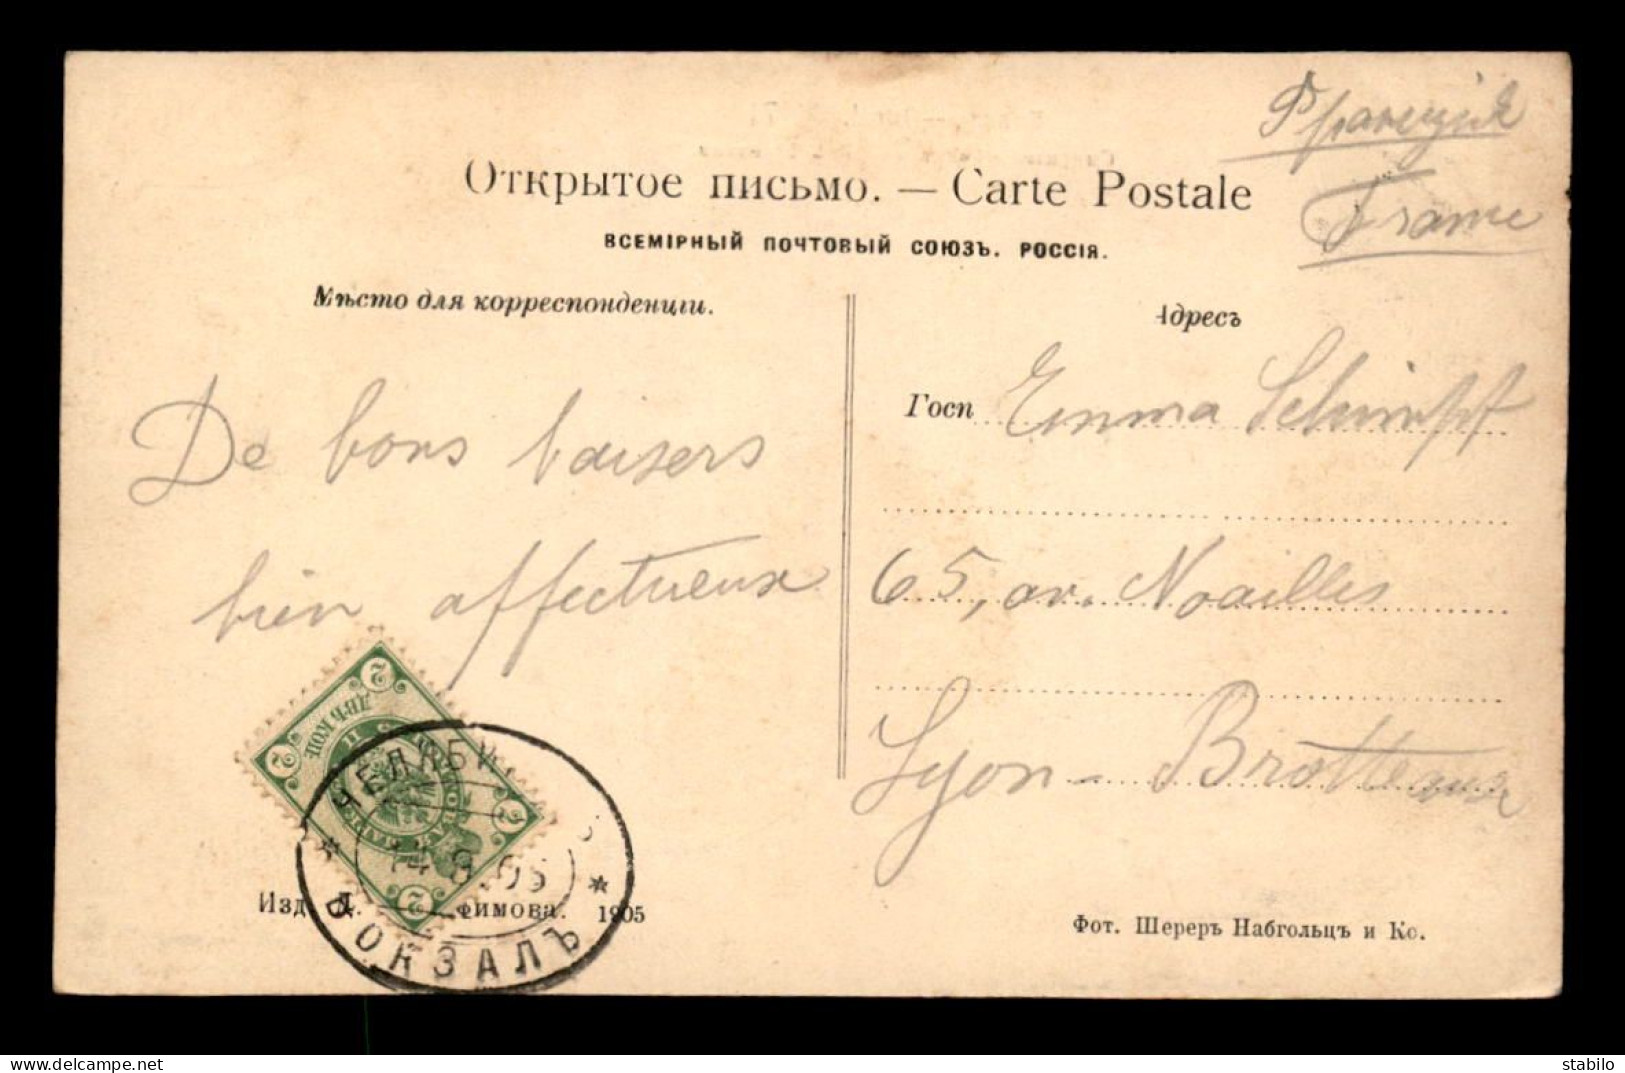 Франція
France
Открытое письмо. — Carte Postale
ВСЕМІРНЫЙ ПОЧТОВЫЙ СОЮЗЪ. РОССІЯ.
Мѣсто для корреспонденціи.
Адресъ
De bons baisers
bien affectueux
Госп Emma Schimpf
65, av. Noailles
Lyon - Brotteaux
2
ДВѢ КОП
2
2
2
ЧЕЛЯБИ
14 8.05
ВОКЗАЛЪ
Изд. фимова. 1905
Фот. Шереръ Набгольцъ и Ко.
stabilo